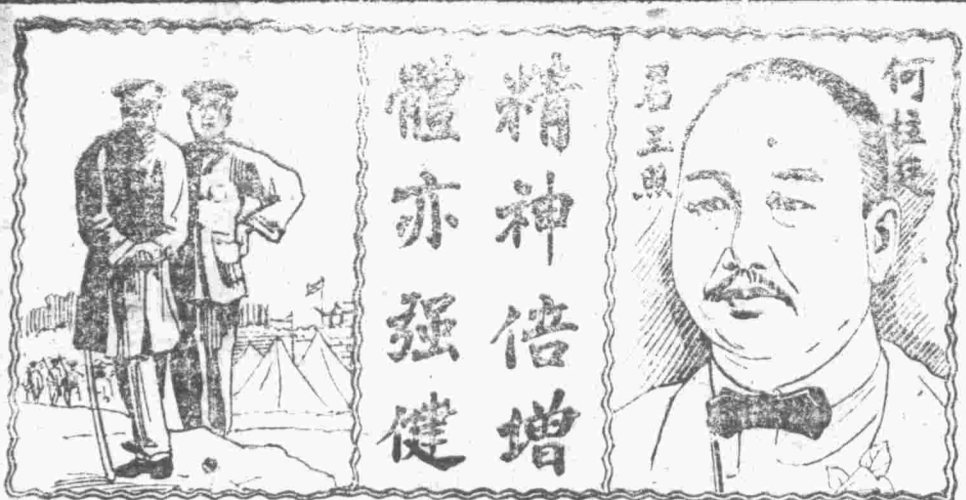 何
君玉照
精神倍增
體亦强健